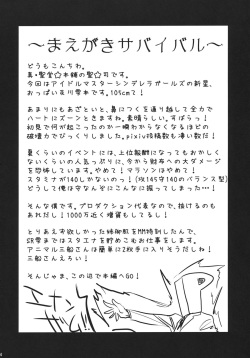 ～まえがきサバイバル～
どうもこんちわ。
真・聖堂☆本舗の聖☆司です。
今回はアイドルマスターシンデレラガールズの新星、
おっぱい及川雫本です。105cmて！
あまりにもあざといと、鼻につくを通り越して全力で
ハートにズーンときますね。素晴らしい。すばらっ！
初見で何が起こったのか一瞬わからなくなるほどの
破壊力でびっくりしました。pixiv投稿数も凄い数だ！
夏くらいのイベントには、上位報酬になってもおかしく
ないくらいの人気っぷりに、今から財布への大ダメージ
を恐怖しています。やめて！マラソンはやめて！
スタミナが140しかないのっ！（攻145守140のバランス型）
どうして俺は守なんぞにこんなに振ってしまったー…！
そんな僕です。プロダクション代表なので、抜けるのも
あれだし！1000万近く増資もしてるし！
とりあえず欲しかった姉御肌をMM特訓したんで、
SR雫まではスタエナを貯めこむお仕事をします。
アニマル三船さんは簡単に2枚手に入りそうだしね！
三船さんえろい！
そんじゃま、この辺で本編へGO！